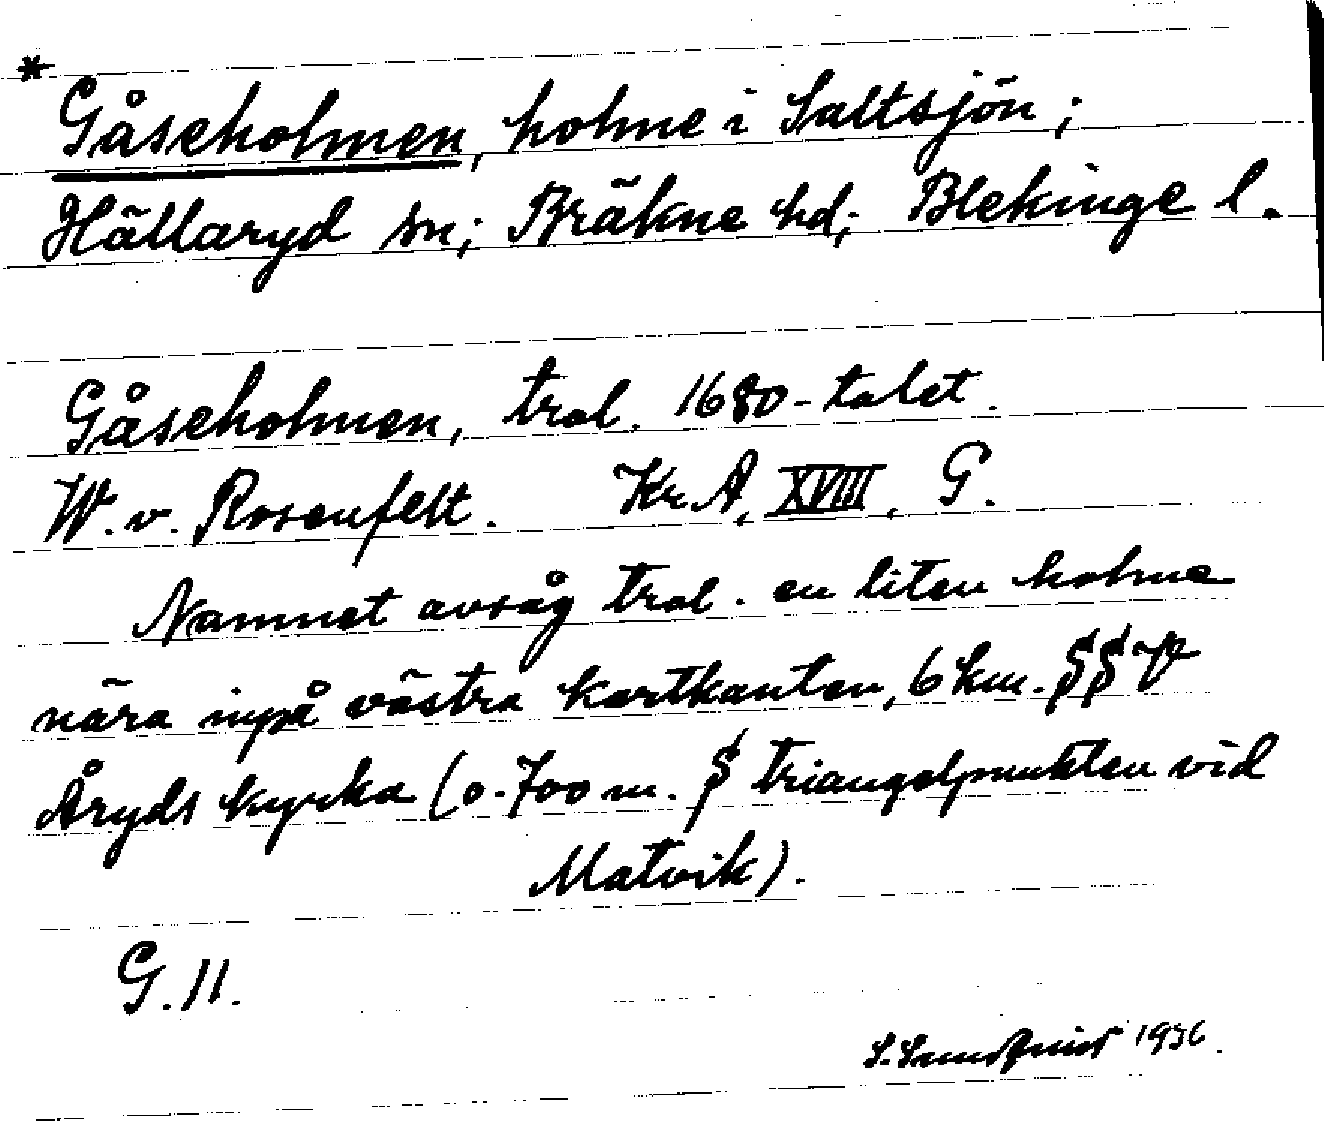 * Gåseholmen, holme i Saltsjön;
Hällaryd sn; Bräkne hd; Blekinge l.
Gåseholmen, trol. 1680-talet.
W. v. Rosenfelt. Kr A, XVIII, G.
Namnet avsåg trol. en liten holme
nära inpå västra kartkanten, 6 km. SSV
Åryds kyrka (o. 700 m. S triangelpunkten vid
Matvik).
G. 11.
S. Sundqvist 1936.